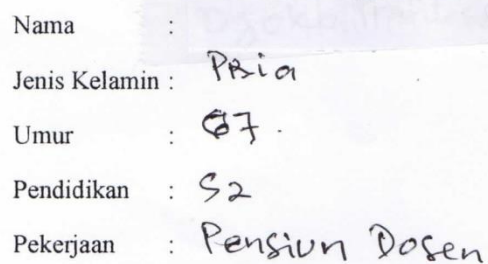 Nama :
Jenis Kelamin : Pria
Umur : 67.
Pendidikan : S2
Pekerjaan : Pensiun Dosen